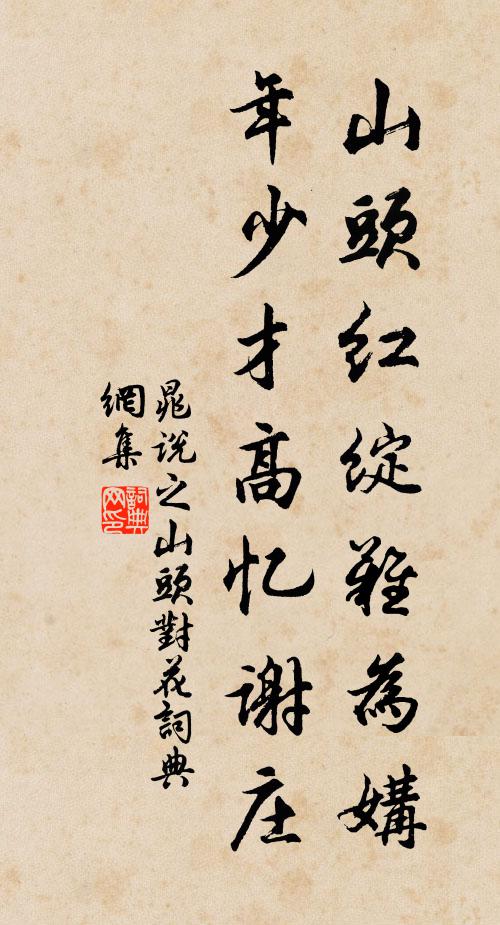 山頭红綻難為媾
年少才高忆谢庄
晁说之山頭對花詞典
網集
詞典网印